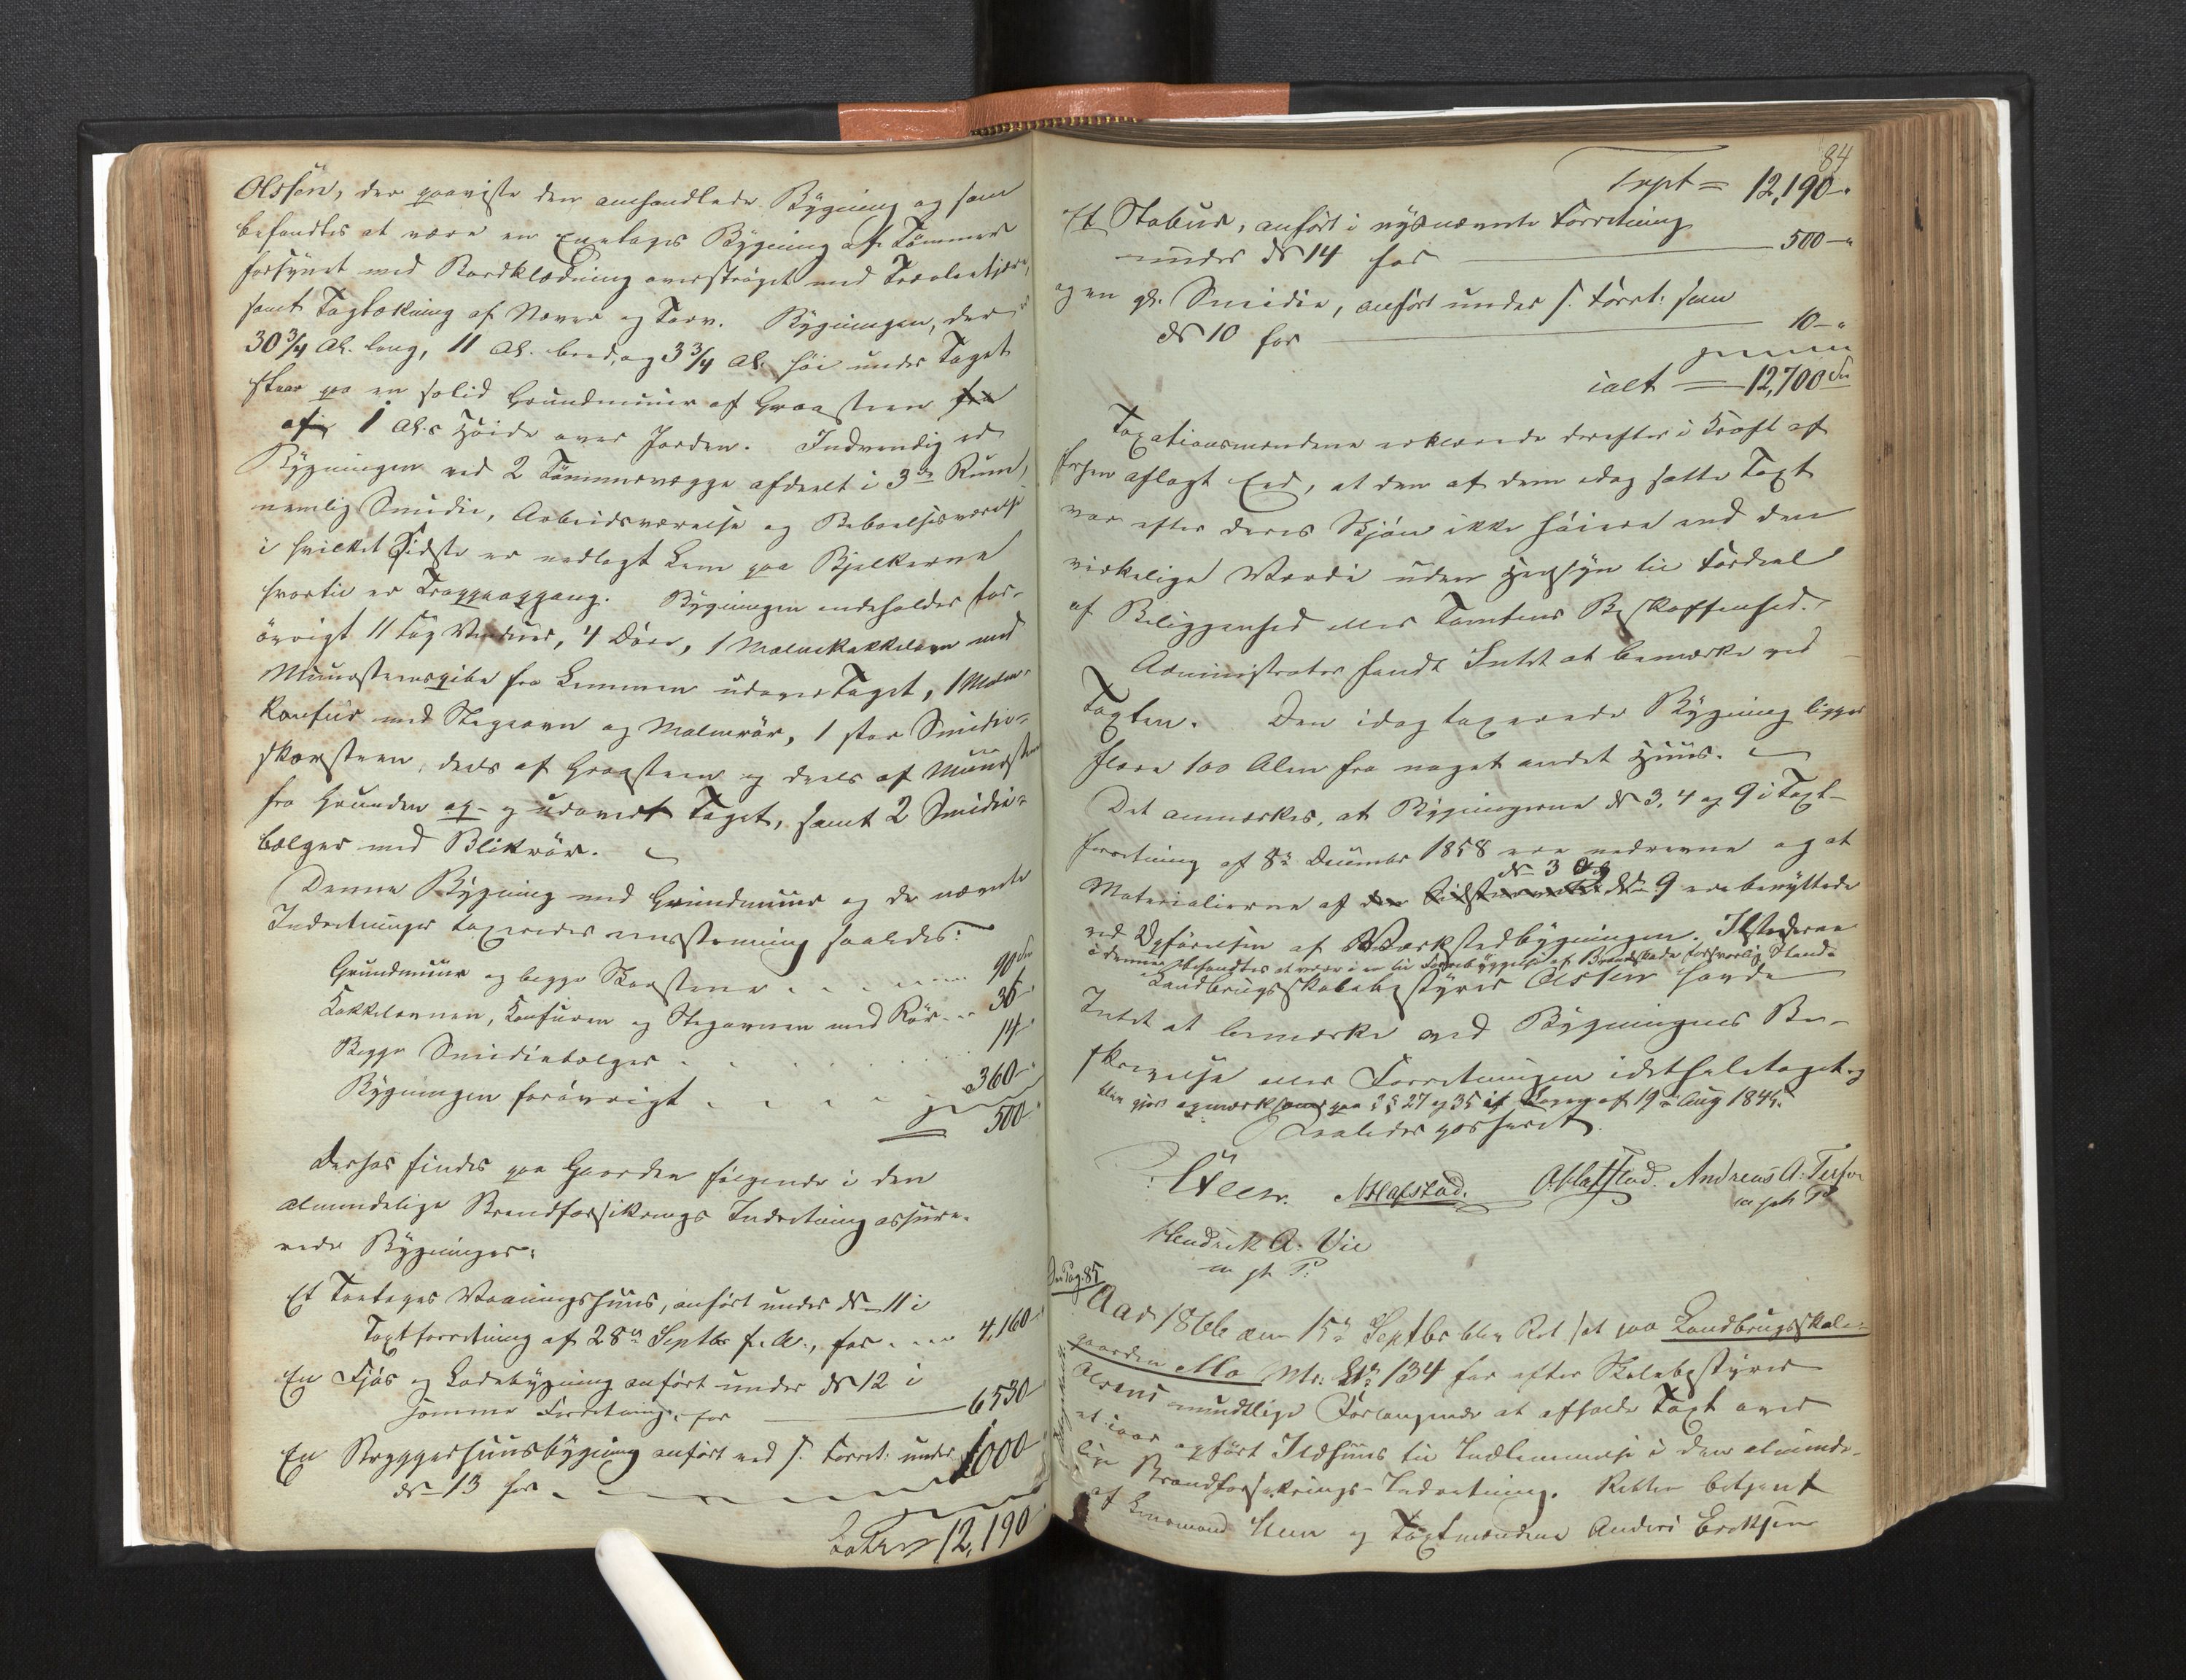 Olssøn, der paaviste den omhandlede Bygning og som
befandtes at være en Eenetages Bygning af Tømmer
forsynet med Bordklædning overstrøget med
samt Tagtækning af Næver og Torv. Bygningen, der er
30 3/4 Al. lang, 11 Al. bred, og 3 3/4 Al. høi under Taget
staar paa en solid Grundmuur af Graasteen
af 1 Al.s Høide over Jorden. Indvendig er
Bygningen ved 2 Tømmervægge afdeelt i 3de Rum,
nemlig Smidie, Arbeidsværelse og Beboelsesværelse
i hvilket Sidste er nedlagt Lem paa Bjelkerne
hvortil er Trappeopgang. Bygningen indeholder for-
øvrigt 11 Fag Vinduer, 4 Døre, 1 Malmkakkelovn med
Muursteenspibe fra Lemmen udover Taget, 1 Malm-
komfur med Stegeovn og Malmrør, 1 stor Smidie-
skorsteen, deels af Graasteen og deels af Muursteen
fra Grunden op- og udover Taget, samt 2 Smidie-
bælger med Blikrør.
Denne Bygning med Grundmuur og de nævnte
Indretninger taxeredes eenstemmig saaledes:
Grundmuur og begge Skorstene . . . 90 Sp
Kakkelovnen, Komfuren og Stegeovnen med Rør . . 36 -
Begge Smidiebælger . . . 14 -
Bygningen forøvrigt . . . . 360 -
500 -
Derhos findes paa Gaarden følgende i den
almindelige Brandforsikrings Indretning assure-
rede Bygninger:
Et Toetages Vaaningshuus, anført under No 11 i
Taxtforretning af 28de Septbr f. A., for . . . 4,160 -
En Fjøs og Ladebygning anført under No 12 i
samme Forretning, for 6530 -
En Bryggerhuusbygning anført ved s. Forret. under 1000 -
No 13 for
Latus 12,190 -
84
Trspt = 12,190 -
Et Stabur, anført i nysnævnte Forretning
under No 14 for 500 -
og en gl. Smidie, anført under s. Forret. som
No 10 for 10 -
ialt 12,700 Sp
Taxationsmændene erklærede derefter i Kraft af
forhen aflagt Eed, at den af dem idag satte Taxt
var efter deres Skjøn ikke høiere end den
virkelige Værdi uden Hensyn til Fordeel
af Beliggenhed eller Tomtens Beskaffenhed.
Administrator fandt Intet at bemærke ved
Taxten. Den idag taxerede Bygning ligger
flere 100 Alen fra noget andet Huus.
Det anmærkes, at Bygningerne No 3, 4 og 9 i Taxt-
forretning af 8de December 1858 ere nedrevne og at
No 3 og
Materialierne af den Sidstnævnte No 9 ere benyttede
ved Opførelsen af Værkstedbygningen. Ildstederne
i denne befandtes at være i en til Forebyggelse af Brandskade forsvarlig Stand.
Landbrugsskolebestyrer Olssen havde
Intet at bemærke ved Bygningens Be-
skrivelse eller Forretningen idetheletaget og
blev gjort opmærksom paa §§ 27 og 35 i Loven af 19de Aug 1845.
Saaledes passeret.
Steen. A. Hafstad. O. Hafstad. Andreas A.
m p P
Hendrik A. Vie
m p P.
Aar 1866 den 15de Septbr blev Ret sat paa Landbrugsskole-
gaarden Mo Mtr. No 134 for efter Skolebestyrer
Olsens mundtlige Forlangende at afholde Taxt over
et iaar opført Ildhuus til Indlemmelse i den alminde-
lige Brandforsikrings-Indretning. Retten betjent
af Lensmand Steen og Taxtmændene Anders Eriksen